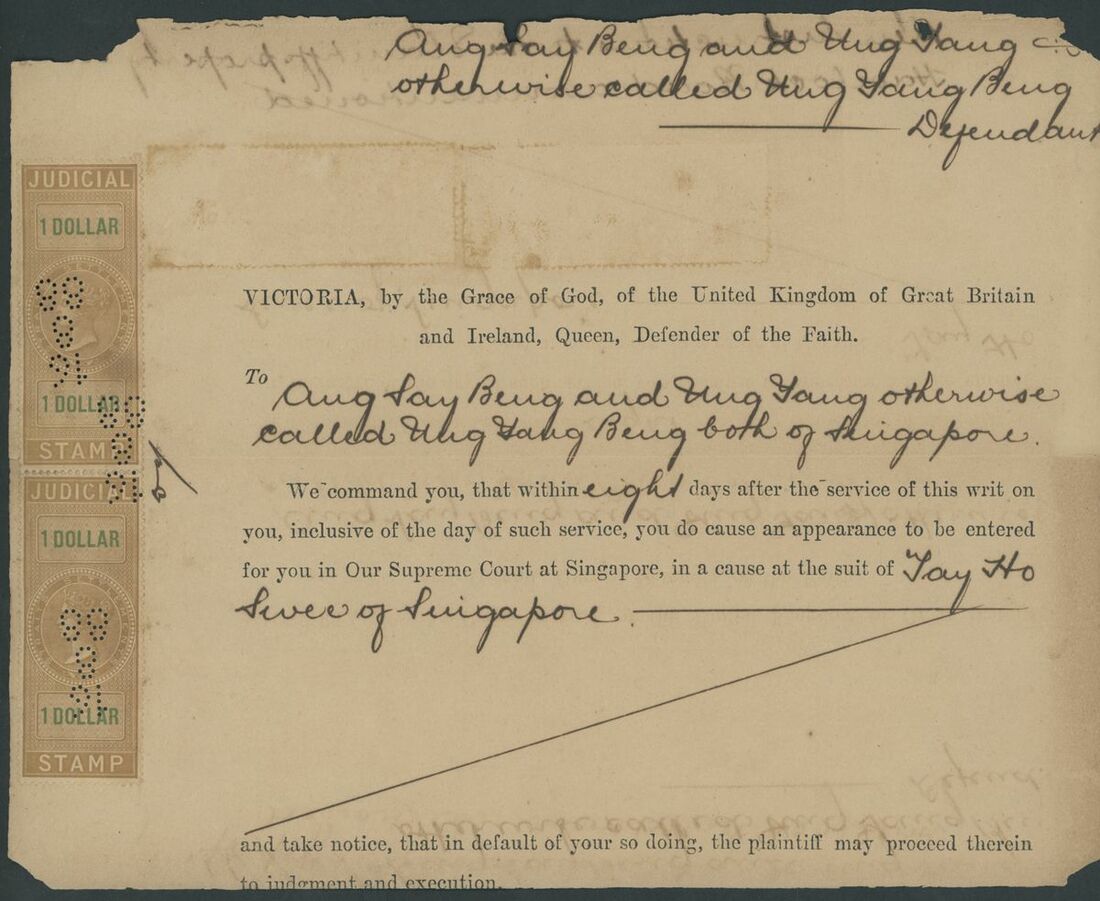 Ang Say Beng and Ung Yang
otherwise called Ung Yang Beng
Defendant
JUDICIAL
1 DOLLAR
1 DOLLAR
STAMP
JUDICIAL
1 DOLLAR
1 DOLLAR
STAMP
VICTORIA, by the Grace of God, of the United Kingdom of Great Britain
and Ireland, Queen, Defender of the Faith.
To Ang Say Beng and Ung Yang otherwise
called Ung Yang Beng both of Singapore.
We command you, that within eight days after the service of this writ on
you, inclusive of the day of such service, you do cause an appearance to be entered
for you in Our Supreme Court at Singapore, in a cause at the suit of Tay Ho
Swee of Singapore
and take notice, that in default of your so doing, the plaintiff may proceed therein
to judgment and execution.